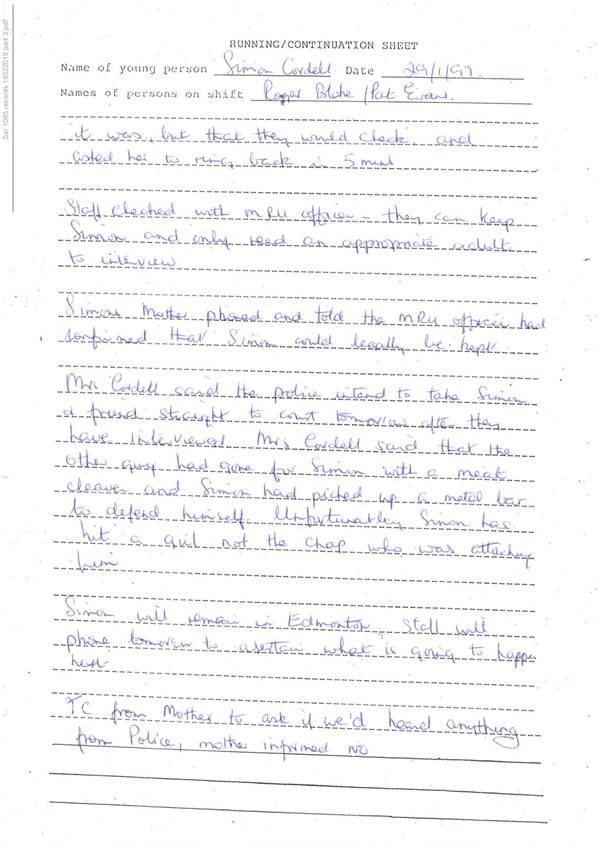 Sar 1085 records 18022019 part 3.pdf
RUNNING/CONTINUATION SHEET
Name of young person Simon Cordell Date 29/1/97.
Names of persons on shift Roger Blake / Pat Evans.
it was, but that they would check, and
asked her to ring back in 5 mins
Staff checked with MRU officer - they can keep
Simon and only need an appropriate adult
to interview
Simons Mother phoned and told the MRU officer had
confirmed that Simon could legally be kept
Mrs Cordell said the police intend to take Simon
& friend straight to court tomorrow after they
have interviewed Mrs Cordell said that the
other guy had gone for Simon with a meat
cleaver and Simon had picked up a metal bar
to defend himself. Unfortunatley Simon has
hit a guil not the chap who was attaching
him
Simon will remain in Edmonton, Staff will
phone tomorrow to asertain what is going to happen
next
TC from Mother to ask if we'd heard anything
from Police, mother informed NO